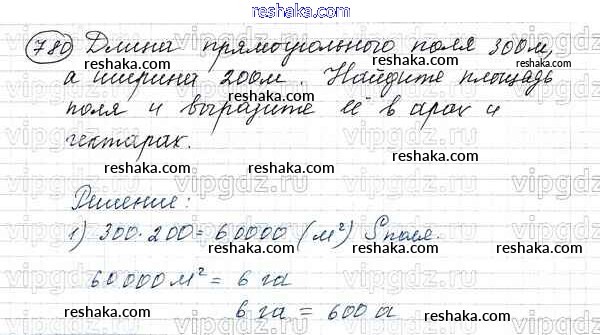 reshaka.com
780 Длина прямоугольного поля 300м,
reshaka.com
а ширина 200м. Найдите площадь
reshaka.com
поля и выразите её в арах и
reshaka.com
гектарах.
vipgdz.ru vipgdz.ru vipgdz.ru
reshaka.com reshaka.com
Решение:
reshaka.com
1) 300·200=60000 (м²) Sполя.
reshaka.com reshaka.com
60000м² = 6 га
reshaka.com
reshaka.com
6 га = 600 а
reshaka.com